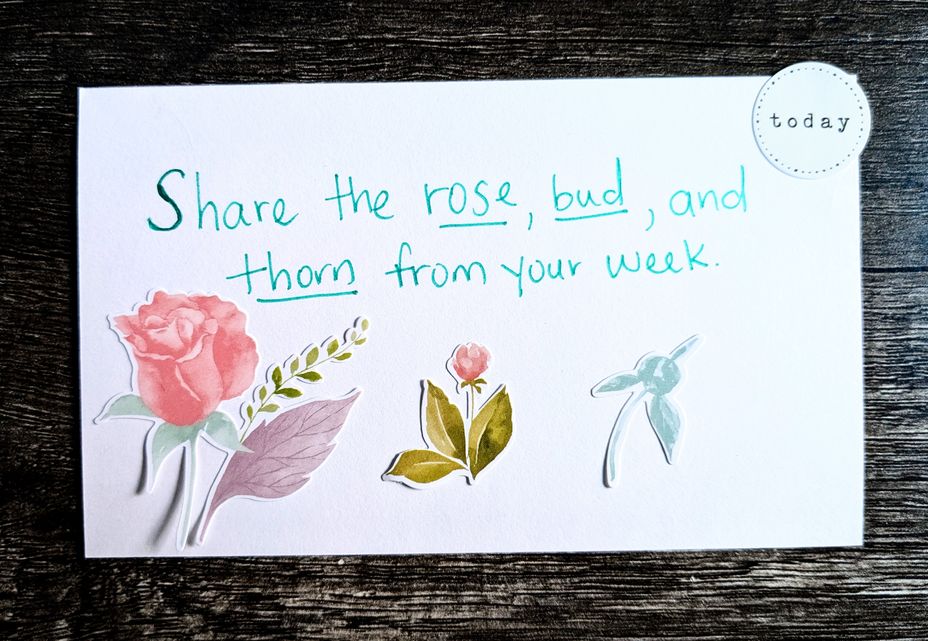 today
Share the rose, bud, and
thorn from your week.